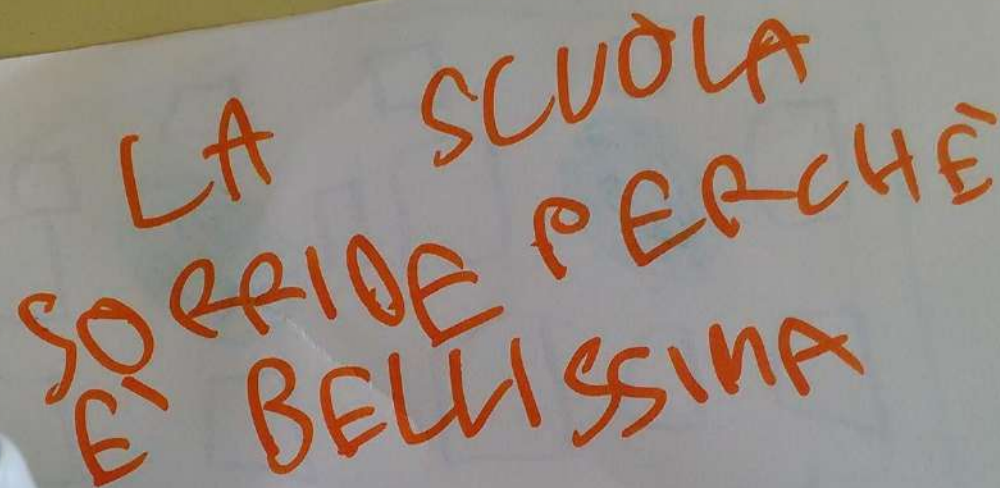 LA SCUOLA
SORRIDE PERCHÈ
È BELLISSIMA